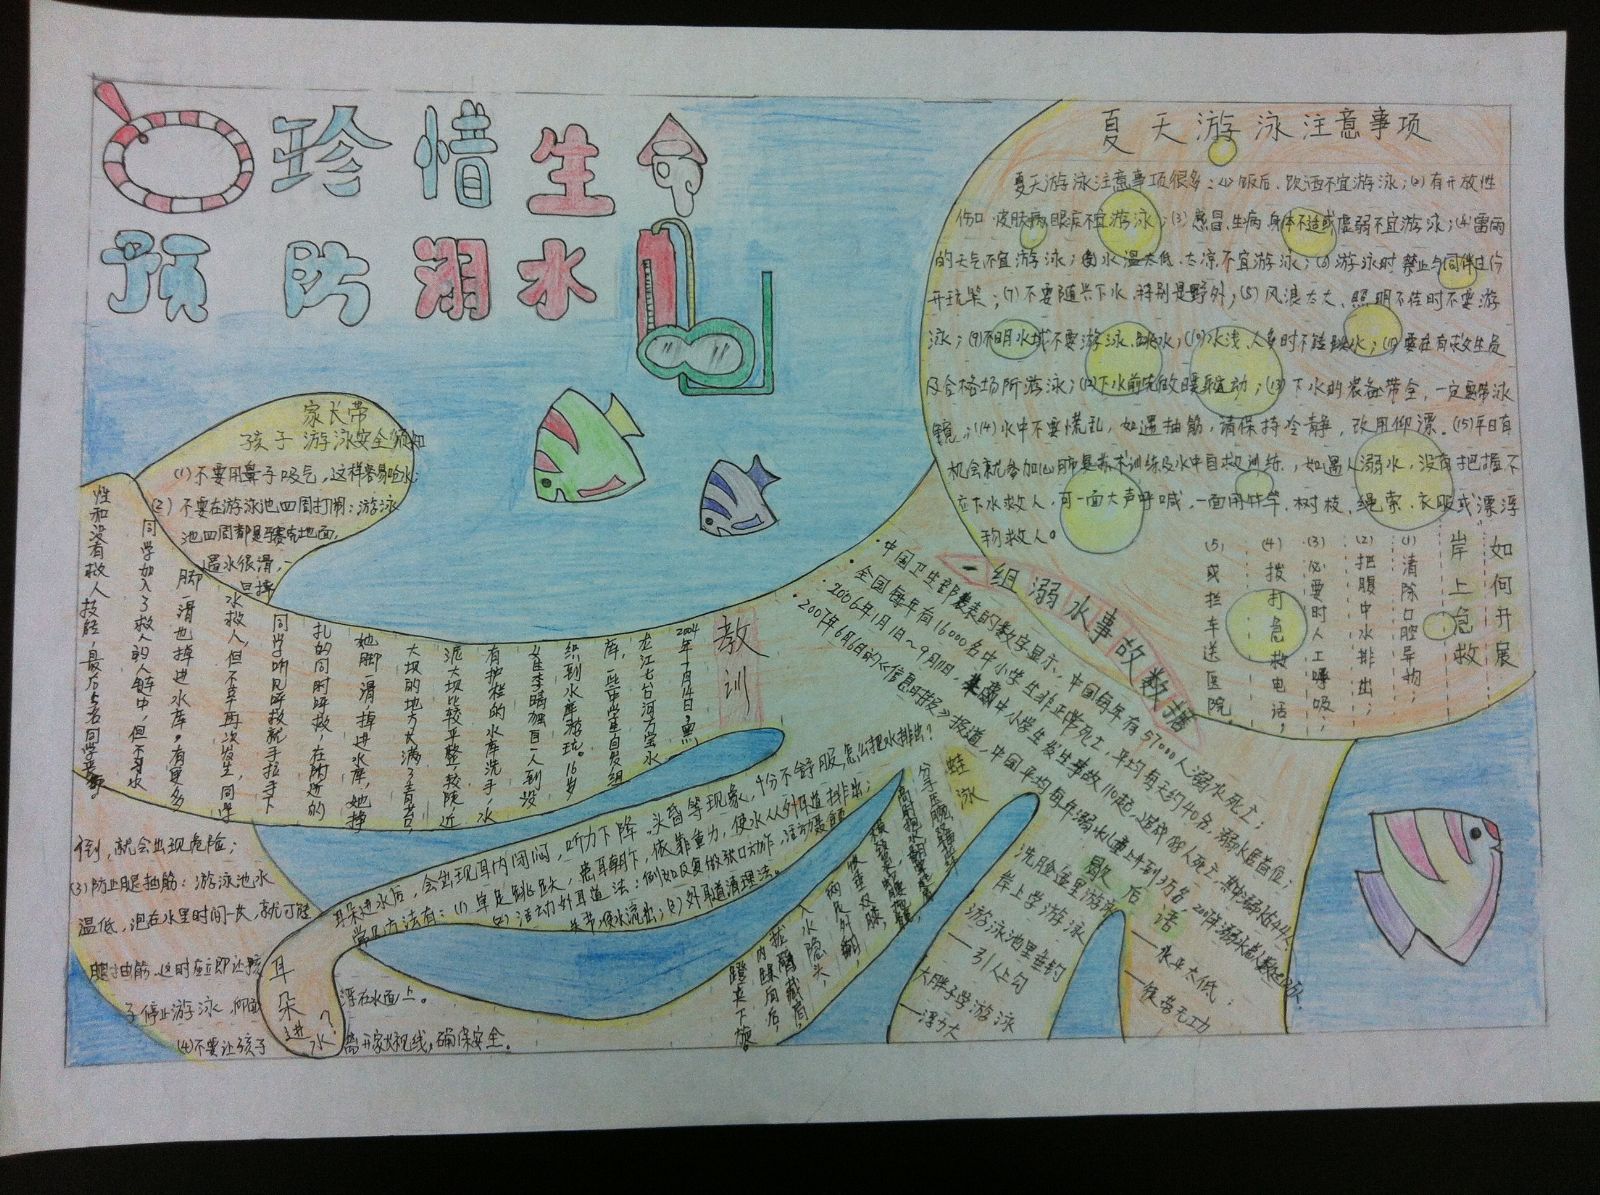 珍惜生命
预防溺水
夏天游泳注意事项
夏天游泳注意事项很多：(1)饭后、饮酒不宜游泳；(2)有开放性
伤口、皮肤病、眼疾不宜游泳；(3)感冒、生病、身体不适或虚弱不宜游泳；(4)雷雨
的天气不宜游泳；(5)水温太低、太凉不宜游泳；(6)游泳时禁止与同伴过份
开玩笑；(7)不要随兴下水、特别是野外；(8)风浪太大、照明不佳时不要游
泳；(9)不明水域不要游泳、跳水；(10)水浅、人多时不能跳水；(11)要在有救生员
及合格场所游泳；(12)下水前先做暖身运动；(13)下水的装备带全，一定要带泳
镜；(14)水中不要慌乱，如遇抽筋，请保持冷静，改用仰漂。(15)平日有
机会就参加心肺复苏术训练及水中自救训练，如遇人溺水，没有把握不
应下水救人，可一面大声呼喊，一面用竹竿、树枝、绳索、衣服或漂浮
物救人。
如何开展
岸上急救
(1)清除口腔异物；
(2)把腹中水排出；
(3)必要时人工呼吸；
(4)拨打急救电话；
(5)或拦车送医院。
家长带
孩子游泳安全须知
(1)不要用鼻子吸气，这样容易呛水；
(2)不要在游泳池四周打闹：游泳
池四周都是瓷地面，
遇水很滑，一
旦摔
倒，就会出现危险；
(3)防止腿抽筋：游泳池水
温低，泡在水里时间一久，就可能
腿抽筋。这时应立即让孩
子停止游泳，仰面
浮在水面上。
(4)不要让孩子
离开家长视线，确保安全。
教训
2004年7月14日，黑
龙江七台河万宝水
库，一些中学生自发组
织到水库游玩。16岁
女生李晴独自一人到没
有护栏的水库洗手，水
泥大坝比较平整，较陡，近
大坝的地方长满了青苔，
她脚一滑掉进水库，她掉
扎的同时呼救，在附近的
同学听见呼救就手拉手下
水救人，但不幸再次发生，同学
脚一滑也掉进水库。有更多
同学加入了救人的人链中，但不习水
性和没有救人技能，最后5名同学
一组溺水事故数据
·中国卫生部发表的数字显示，中国每年有57000人溺水死亡；
·全国每年有16000名中小学生非正常死亡，平均每天约40名，溺水居首位；
·2006年1月1日～9月11日，中小学生发生事故110起，造成
·2007年6月6日的《信息时报》报道，中国平均每年溺水儿童上千到3万名
耳朵进水？
耳朵进水后，会出现耳内闭闷，听力下降、头昏等现象，十分不舒服，怎么把水排出？
常见方法有：(1)单足跳跃，患耳朝下，依靠重力，使水从外耳道排出；
(2)活动外耳道法：例如反复做张口动作，活动颞颌
关节，使水流出；(3)外耳道清理法。
蛙泳
两爪外翻，
入水隐头，
蹬夹下旋。
冒后语
洗脸盆里游泳
岸上学游泳
游泳池里垂钓
——引人上勾
大胖子学游泳
——浮力大
——水平太低；
——徒劳无功